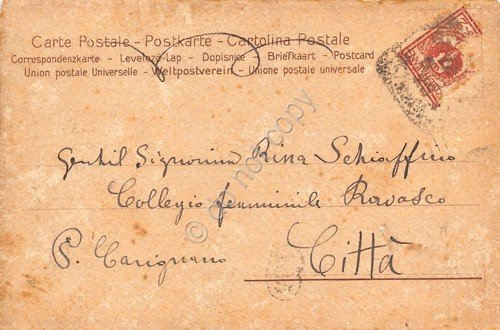 Carte Postale - Postkarte - Cartolina Postale
Correspondenzkarte - Levelezö-Lap - Dopisnice - Briefkaart - Postcard
Union postale Universelle - Weltpostverein - Unione postale universale
Gentil Signorina Rina Schiaffino
Collegio femminile Ravasco
P. Carignano Città
do not copy